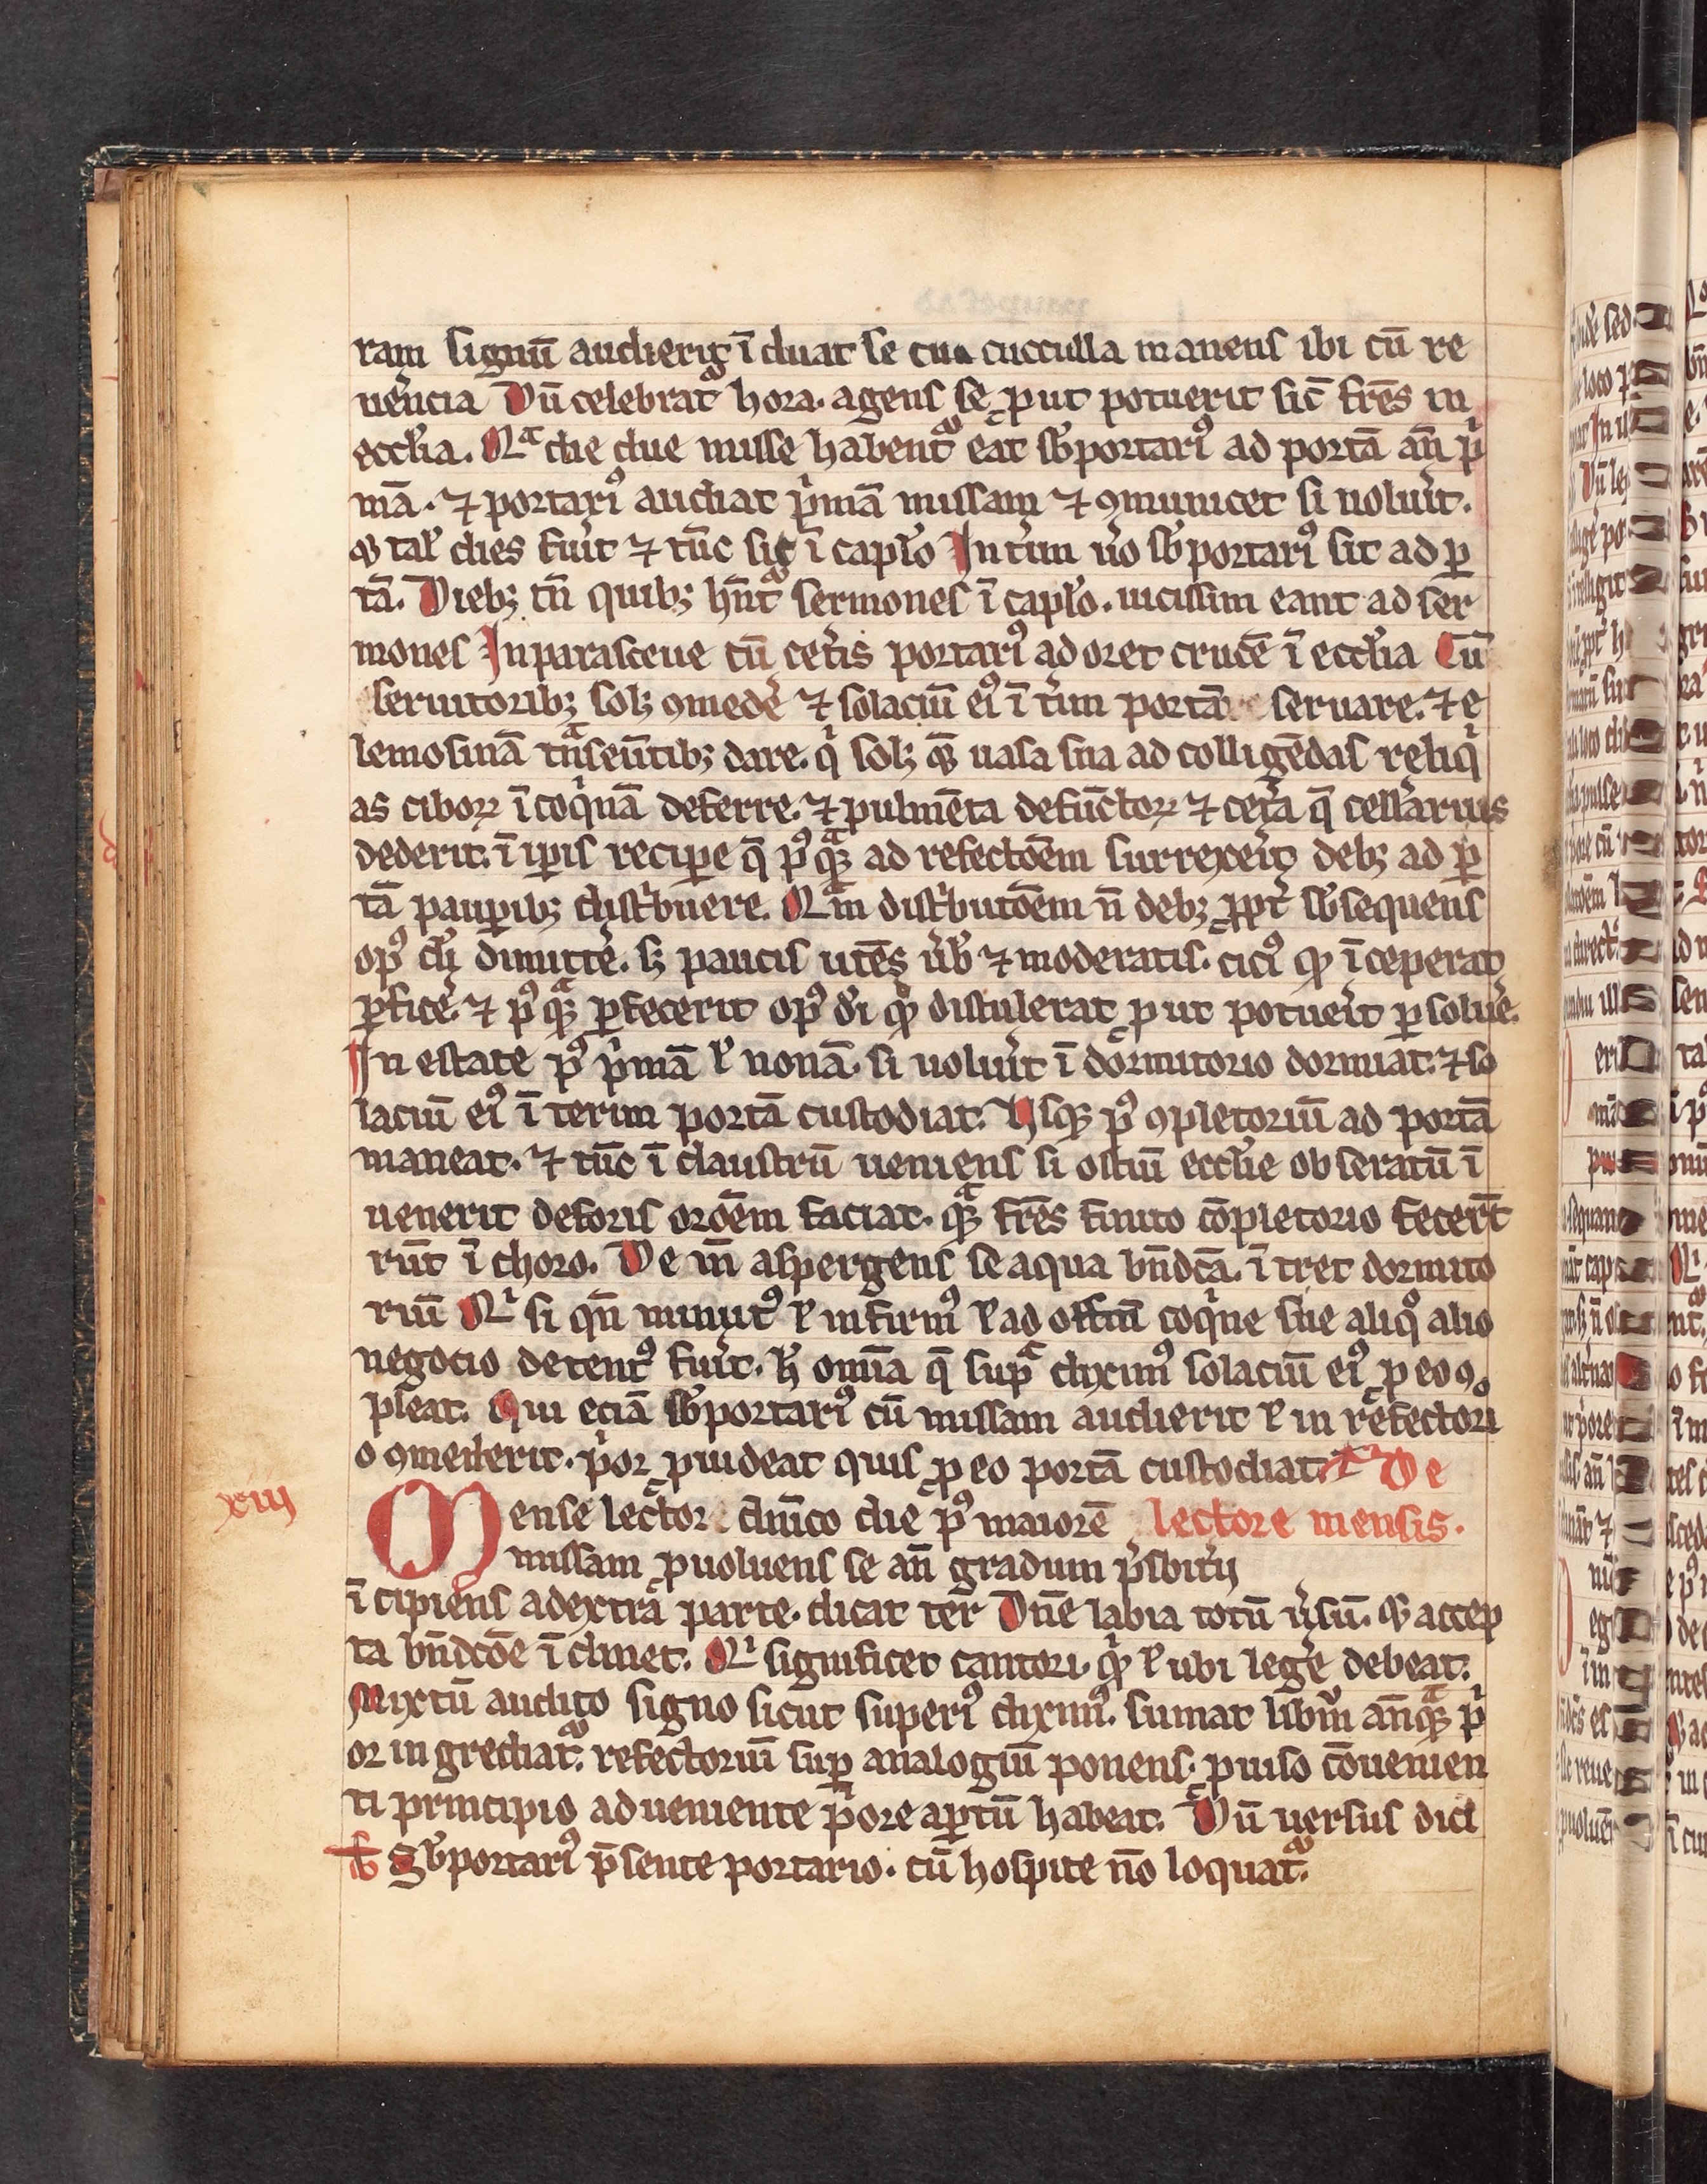 ram signū audierit ī duat se cuculla manens ibi cū re
uēncia Dū celebrat᷑ hora. agens se ꝓut potuerit sic̄ fr̄es in
eccl̓ia. Qͣ die due misse habent᷑ eat sb̓portariꝰ ad portā an̄ pͥ
mā. ⁊ portariꝰ audiat pͥmā missam ⁊ ꝯmunicet si uolu̓it.
qͥ tal̓ dies fu̓it ⁊ tūc sit ī capl̓o In t̓im u̓o sb̓portariꝰ sit ad por
tā. Diebꝫ tn̄ quibꝫ hn̄t᷑ sermones ī capl̓o. uicissim eant ad ser
mones In parasceue cū cet̓is portariꝰ adoret crucē ī eccl̓ia Cū
seruitoribꝫ solꝫ ꝯmed̓e ⁊ solaciū eiꝰ ī t̓im portā seruare. ⁊ e
lemosinā tͣnseūtibꝫ dare. qͥ solꝫ qꝫ uasa sua ad colligēdas reliqͥ
as ciboꝝ ī coqͥnā deferre. ⁊ pulmēta defūctoꝝ ⁊ cet̓a q̄ cellarius
dederit. ī ip̄is recipe q̄ pꝰqͣꝫ ad refectōem surrexer̄t debꝫ ad por
tā pauꝑibꝫ distͥbuere. Qͣm distͥbutōem n̄ debꝫ ꝓpt̓ sb̓sequens
opꝰ di̓ dimitt̓e. sꝫ paucis utēs u̓b̓ ⁊ moderatis. ciciꝰ qͦ īceperat
ꝑfic̓e. ⁊ pꝰqͣꝫ ꝑfecerit opꝰ di̓ qͦ distulerat ꝓut potu̓it ꝑsolu̓e.
In estate pꝰ pͥmā l̓ nonā. si uolu̓it ī dormitorio dormiat. ⁊ so
laciū eiꝰ ī terim portā custodiat. Usqꝫ pꝰ ꝯpletoriū ad portā
maneat. ⁊ tūc ī claustrū ueniens si ostiū eccl̓ie obseratū ī
uenerit deforis orōem faciat. qͣꝫ fr̄es finito cōpletorio fecer̄t
rūt ī choro. Dein̄ aspergens se aqua bn̄dcā. ī tret dormito
riū Qͥ si qn̄ minutꝰ l̓ infirmꝰ l̓ ad offm̄ coqͥne siue aliqͦ alio
negocio detentꝰ fu̓it. h̓ omīa q̄ supͣ diximꝰ solaciū eiꝰ ꝓ eo ꝯ
pleat. Qui eciā sb̓portariꝰ cū missam audierit l̓ in refectori
o ꝯmederit. pͥor ꝓuideat quis ꝓ eo portā custodiat. De
xiij
Mense lector dn̄ico die pꝰ maiorē lectore mensis.
missam ꝓuoluens se an̄ gradum p̓sbit̓ij
ī cipiens a dextra parte. dicat ter̄ Dn̄e labia totū u̓sū. qͥ accep
ta bn̄dcōe ī clinet. Qͥ significet cantori. qͥd l̓ ubi leg̓e debeat.
Mixtū audito signo sicut superiꝰ diximꝰ. sumat libr̄m an̄qͣꝫ pͥ
or ingrediat᷑. refectoriū suꝑ analogiū ponens. ꝓuiso cōuenien
ti principio adueniente pͥore aꝑtū habeat. Dū uersus dici
Sb̓portariꝰ p̄sente portario. cū hospite nō loquat᷑.